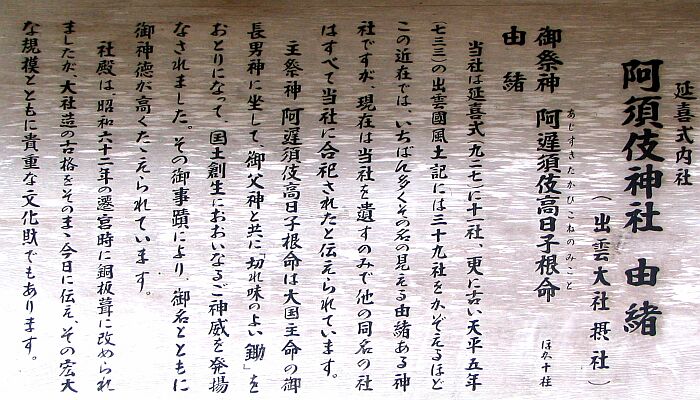 延喜式内社
阿須伎神社 由緒
(出雲大社 摂社)
あじすきたかひこねのみこと
御祭神 阿遅須伎高日子根命 ほか十柱
由緒
当社は延喜式(九二七)に十一社、更に古い天平五年
(七三三)の出雲國風土記には三十九社をかぞえるほど
この近在では、いちばん多くその名の見える由緒ある神
社ですが、現在は当社を遺すのみで他の同名の社
はすべて当社に合祀されたと伝えられています。
主祭神 阿遅須伎高日子根命は大国主命の御
長男神に坐して、御父神と共に「切れ味のよい鋤」を
おとりになって、国土創生におおいなるご神威を発揚
なされました。その御事蹟により、御名とともに
御神徳が高くたゝえられています。
社殿は、昭和六十二年の遷宮時に銅板葺に改められ
ましたが、大社造の古格をそのまゝ今日に伝え、その宏大
な規模とともに貴重な文化財でもあります。